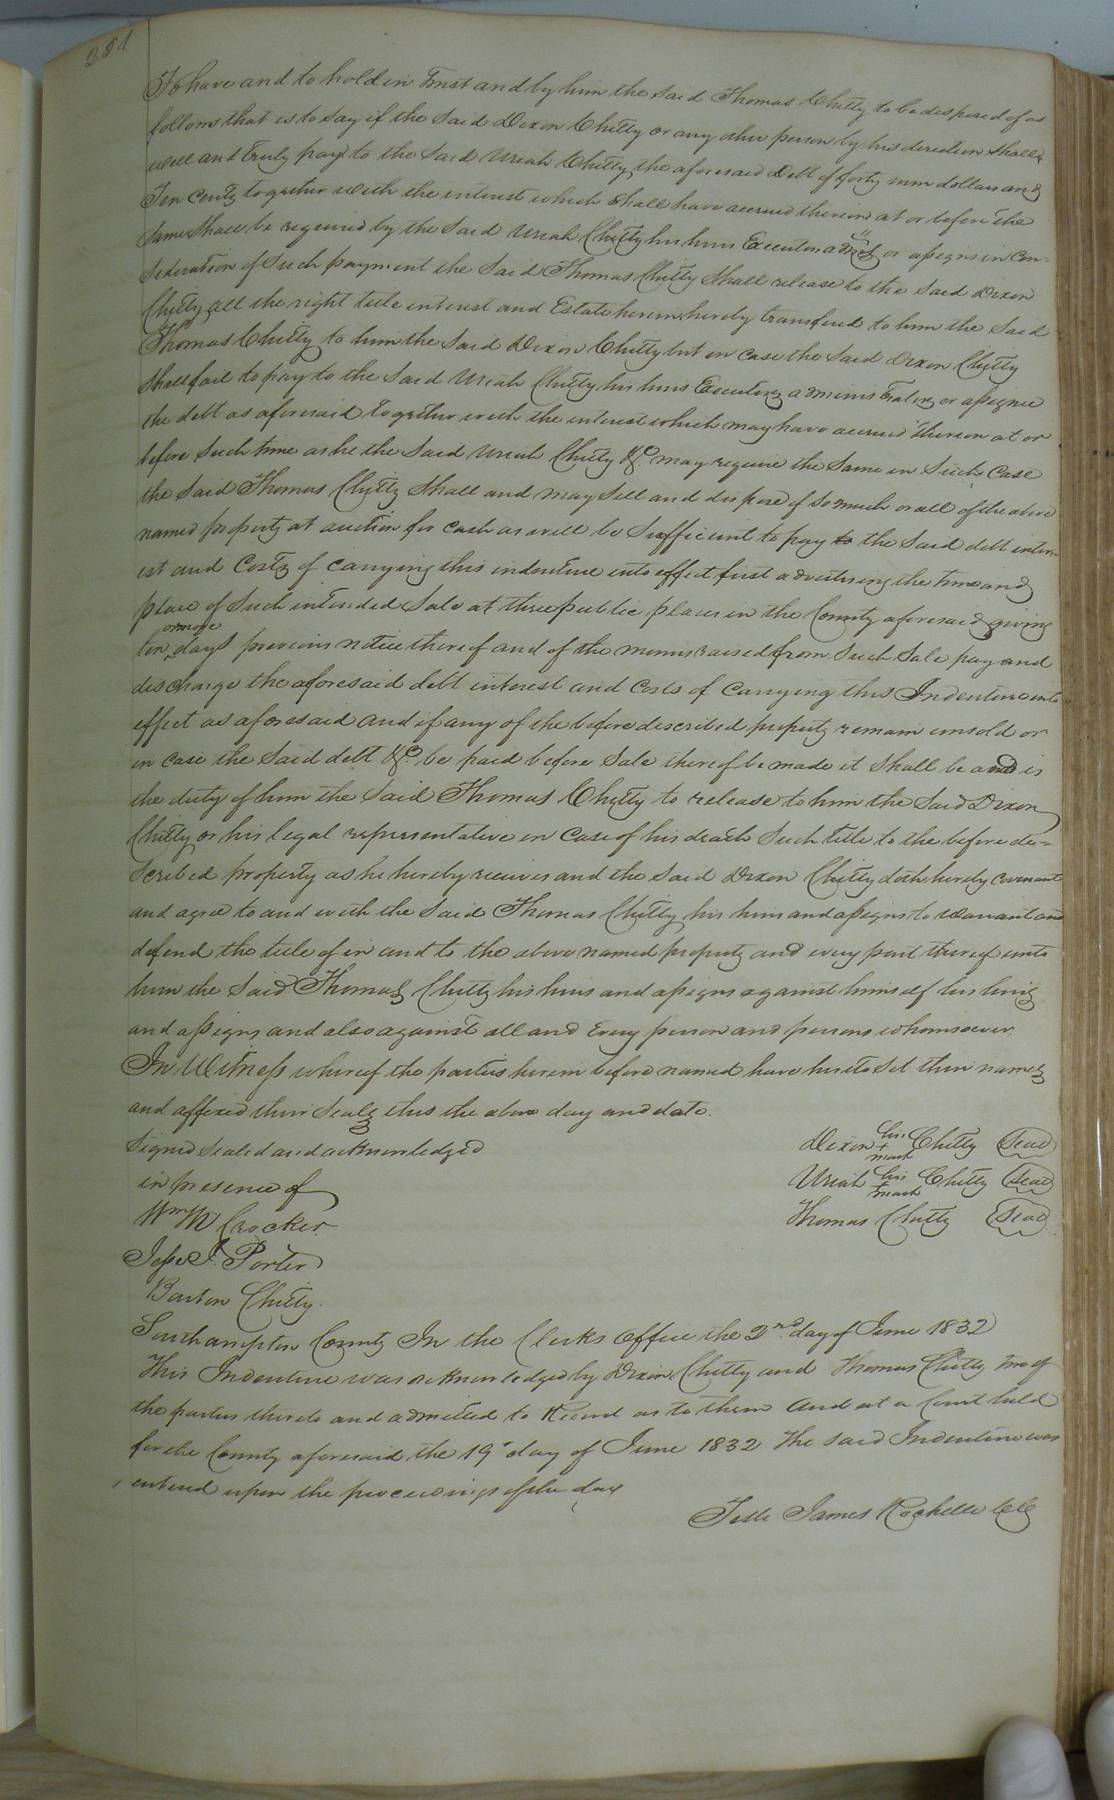 281
To have and to hold in Trust and by him the Said Thomas Chitty to be disposed of as
follows that is to say if the Said Dixon Chitty or any other person by his direction shall
well and truly pay to the Said Uriah Chitty the aforesaid Debt of forty nine dollars and
Ten Cents together with the interest which shall have accrued thereon at or before the
Same Shall be required by the Said Uriah Chitty his heirs Executors adms or assigns in Con=
sideration of Such payment the Said Thomas Chitty Shall release to the Said Dixon
Chitty all the right title interest and Estate herein hereby transfered to him the Said
Thomas Chitty to him the Said Dixon Chitty but in case the Said Dixon Chitty
Shall fail to pay to the Said Uriah Chitty his heirs Executors administrators or assignee
the debt as aforesaid together with the interest which may have accrued thereon at or
before Such time as he the Said Uriah Chitty &c may require the Same in Such Case
the Said Thomas Chitty Shall and may Sell and dispose of So much or all of the above
named property at auction for cash as will be Sufficient to pay to the Said debt inter-
est and Costs of carrying this indenture into effect first advertising the time and
place of Such intended Sale at three public places in the County aforesaid giving
ten or more days previous notice thereof and of the monies raised from Such Sale pay and
discharge the aforesaid debt interest and Costs of Carrying this Indenture into
effect as aforesaid and if any of the before described property remain unsold or
in case the Said debt &c be paid before Sale thereof be made it Shall be and is
the duty of him the Said Thomas Chitty to release to him the Said Dixon
Chitty or his legal representative in Case of his death Such title to the before de=
scribed property as he hereby receives and the Said Dixon Chitty doth hereby Covenant
and agree to and with the Said Thomas Chitty his heirs and assigns to Warrant and
defend the title of in and to the above named property and every part thereof unto
him the Said Thomas Chitty his heirs and assigns against himself his heirs
and assigns and also against all and Every person and persons whomsoever
In Witness whereof the parties herein before named have hereto Set their names
and affixed their Seals this the above day and date.
Signed Sealed and acknowledged
in presence of
Wm W Crocker
Jesse J. Porter
Barton Chitty.
Dixon his + mark Chitty (Seal)
Uriah his + mark Chitty (Seal)
Thomas Chitty (Seal)
Southampton County In the Clerks Office the 2nd day of June 1832
This Indenture was acknowledged by Dixon Chitty and Thomas Chitty two of
the parties thereto and admitted to Record as to them And at a Court held
for the County aforesaid the 19th day of June 1832 The said Indenture was
entered upon the proceedings of the day
Teste James Rochelle CC